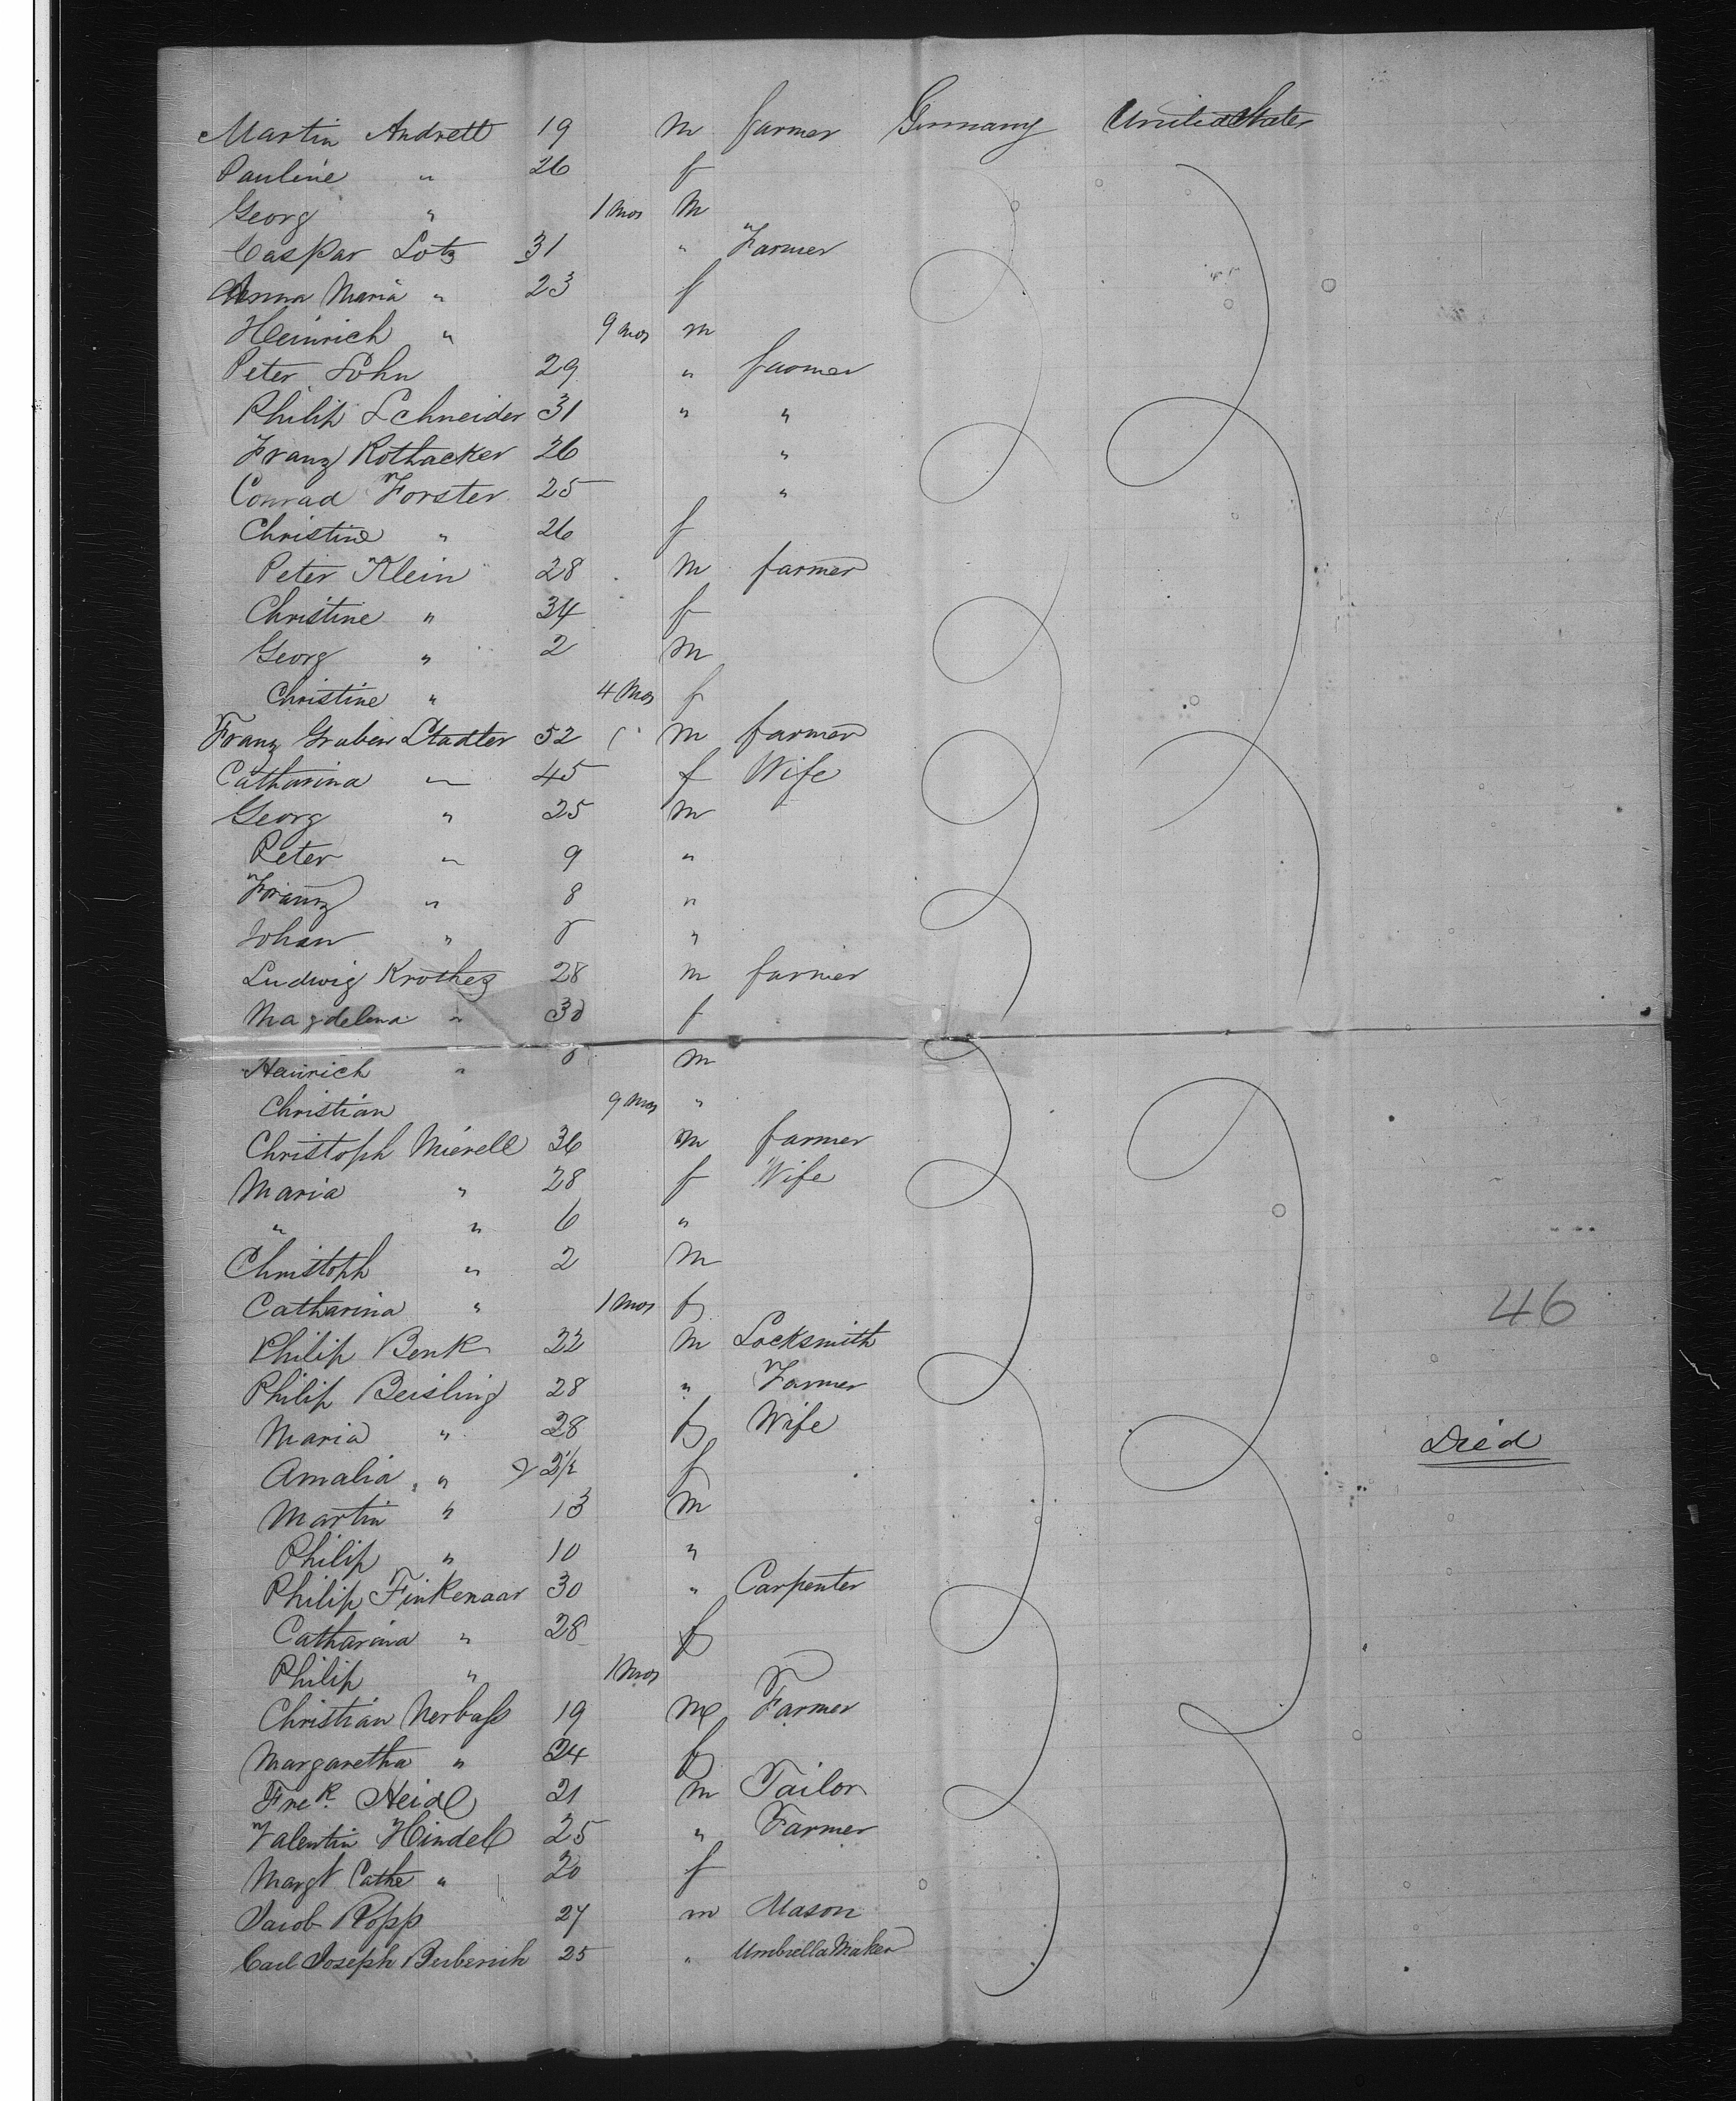 Martin Andrett 19 m farmer Germany United States
Pauline " 26 f
Georg " 1 mos m
Caspar Lotz 31 " Farmer
Anna Maria " 23 f
Heinrich " 9 mos m
Peter Sohn 29 " farmer
Philip Schneider 31 " "
Franz Rothacker 26 "
Conrad Forster 25 "
Christine " 26 f
Peter Klein 28 m farmer
Christine " 34 f
Georg " 2 m
Christine " 4 Mos f
Franz Graben Stadter 52 m farmer
Catharina " 45 f Wife
Georg " 25 m
Peter " 9 "
Franz " 8 "
Johan " "
Ludwig Krothez 28 m farmer
Magdelena " 30 f
Heinrich " m
Christian 9 mos "
Christoph Mierell 36 m farmer
Maria " 28 f Wife
" " 6 "
Christoph " 2 m
Catharina " 1 mos f 46
Philip Benk 22 m Locksmith
Philip Beisling 28 " Farmer
Maria " 28 f Wife Died
Amalia " 2 1/2 f
Martin " 13 m
Philip " 10 "
Philip Finkenaar 30 " Carpenter
Catharina " 28 f
Philip " 1 mos
Christian Nerbass 19 m Farmer
Margaretha " 24 f
Frek. Heidl 21 m Tailor
Valentin Hindel 25 " Farmer
Margt Cathe " 20 f
Jacob Popp 27 m Mason
Carl Joseph Berberich 25 " Umbrella Maker